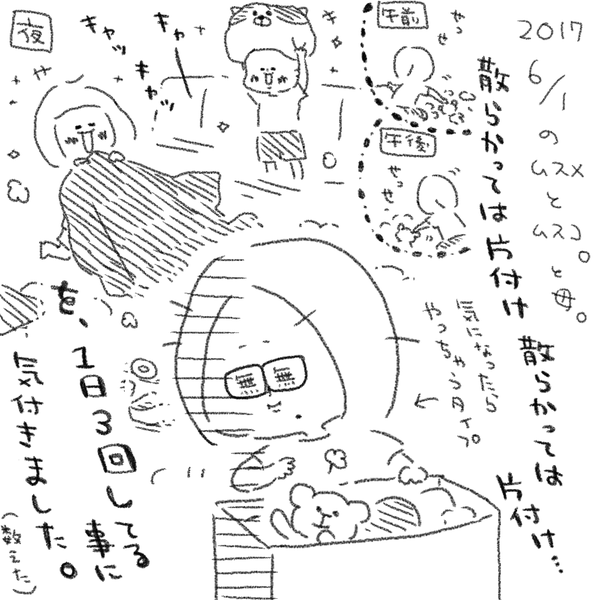 2017
6/1
の
ムスメ
と
ムスコ。
と母。
午前
せっ
せっ
散らかっては片付け
散らかっては
片付け…
午後
せっ
せっ
気になったら
やっちゃうタイプ
夜
キャッ
キャッ
キャー
キャッ
無
無
を、
1日3回してる
事に
気付きました。
(数えた)